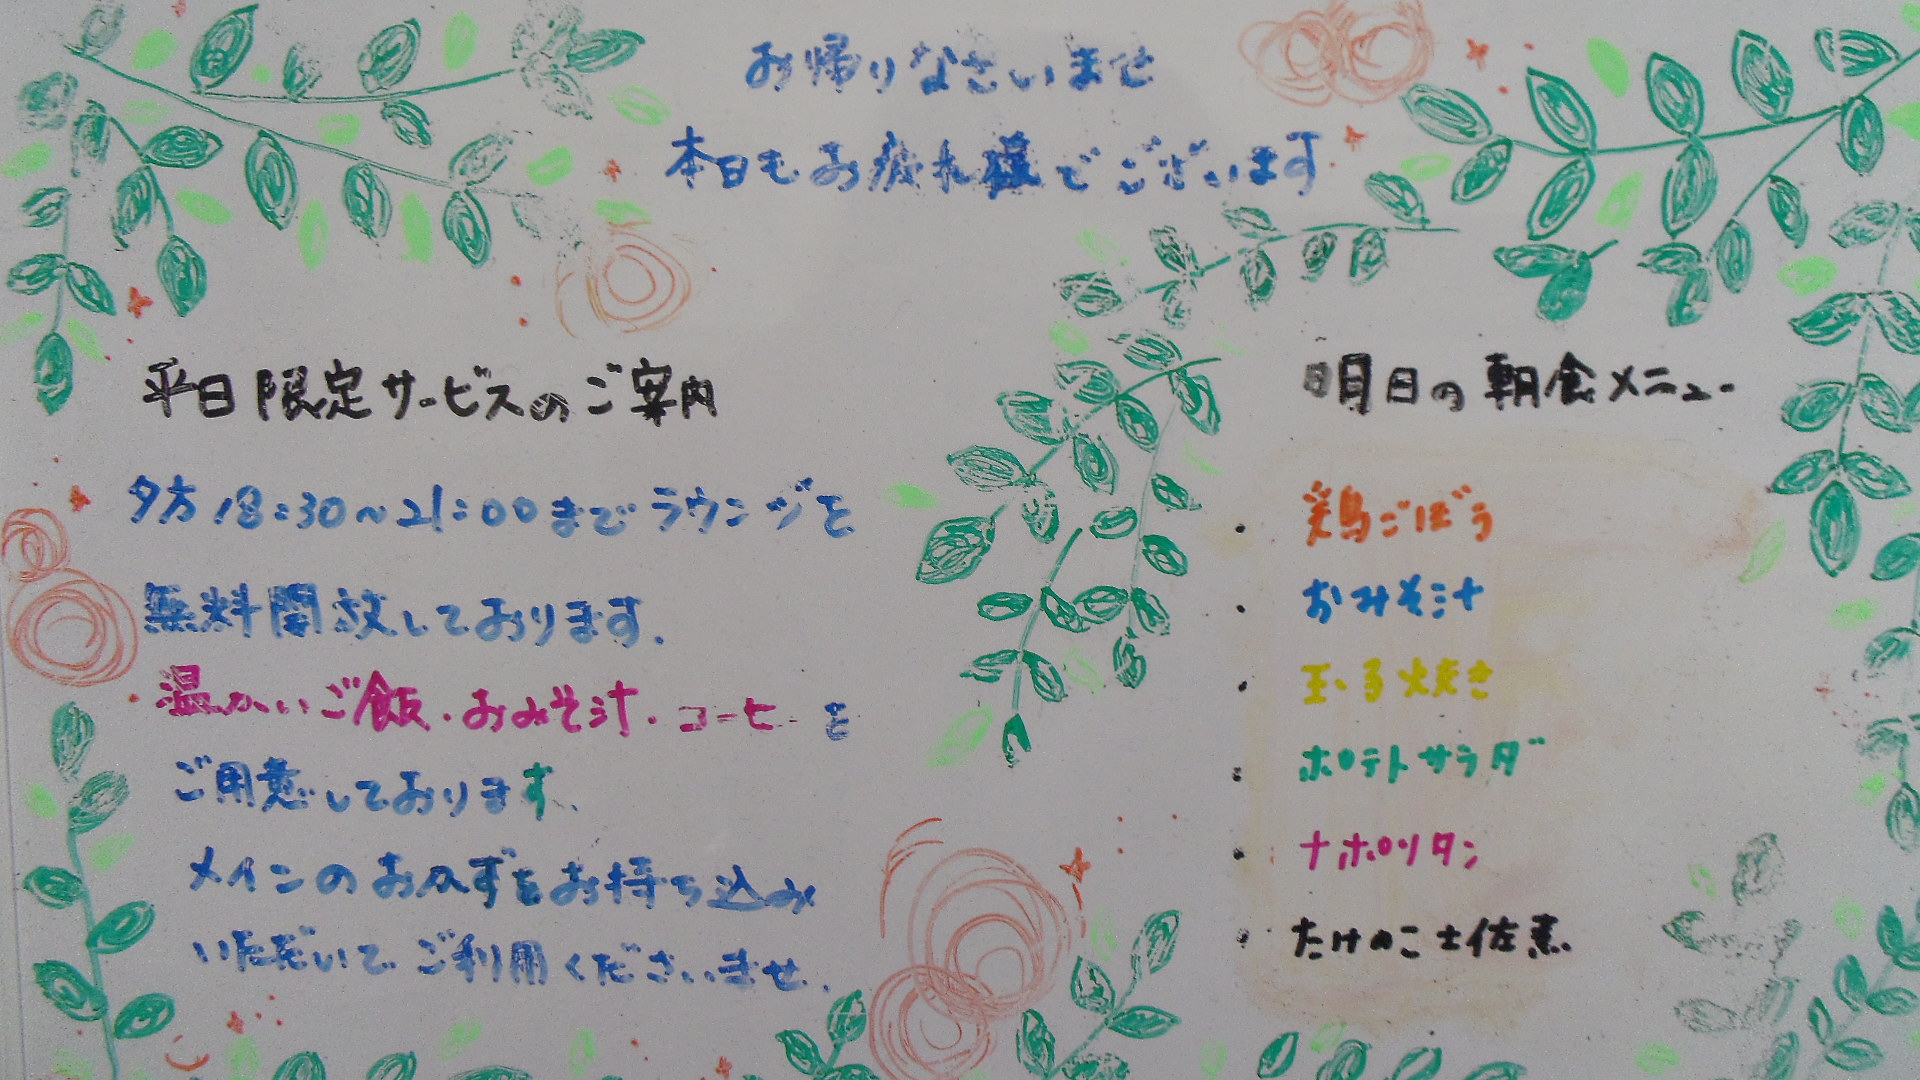 お帰りなさいませ
本日もお疲れ様でございます
平日限定サービスのご案内
夕方18:30~21:00までラウンジを
無料開放しております.
温かいご飯・おみそ汁・コーヒーを
ご用意しております.
メインのおかずをお持ち込み
いただいてご利用くださいませ.
明日の朝食メニュー
・鶏ごぼう
・おみそ汁
・玉子焼き
・ポテトサラダ
・ナポリタン
・たけのこ土佐煮